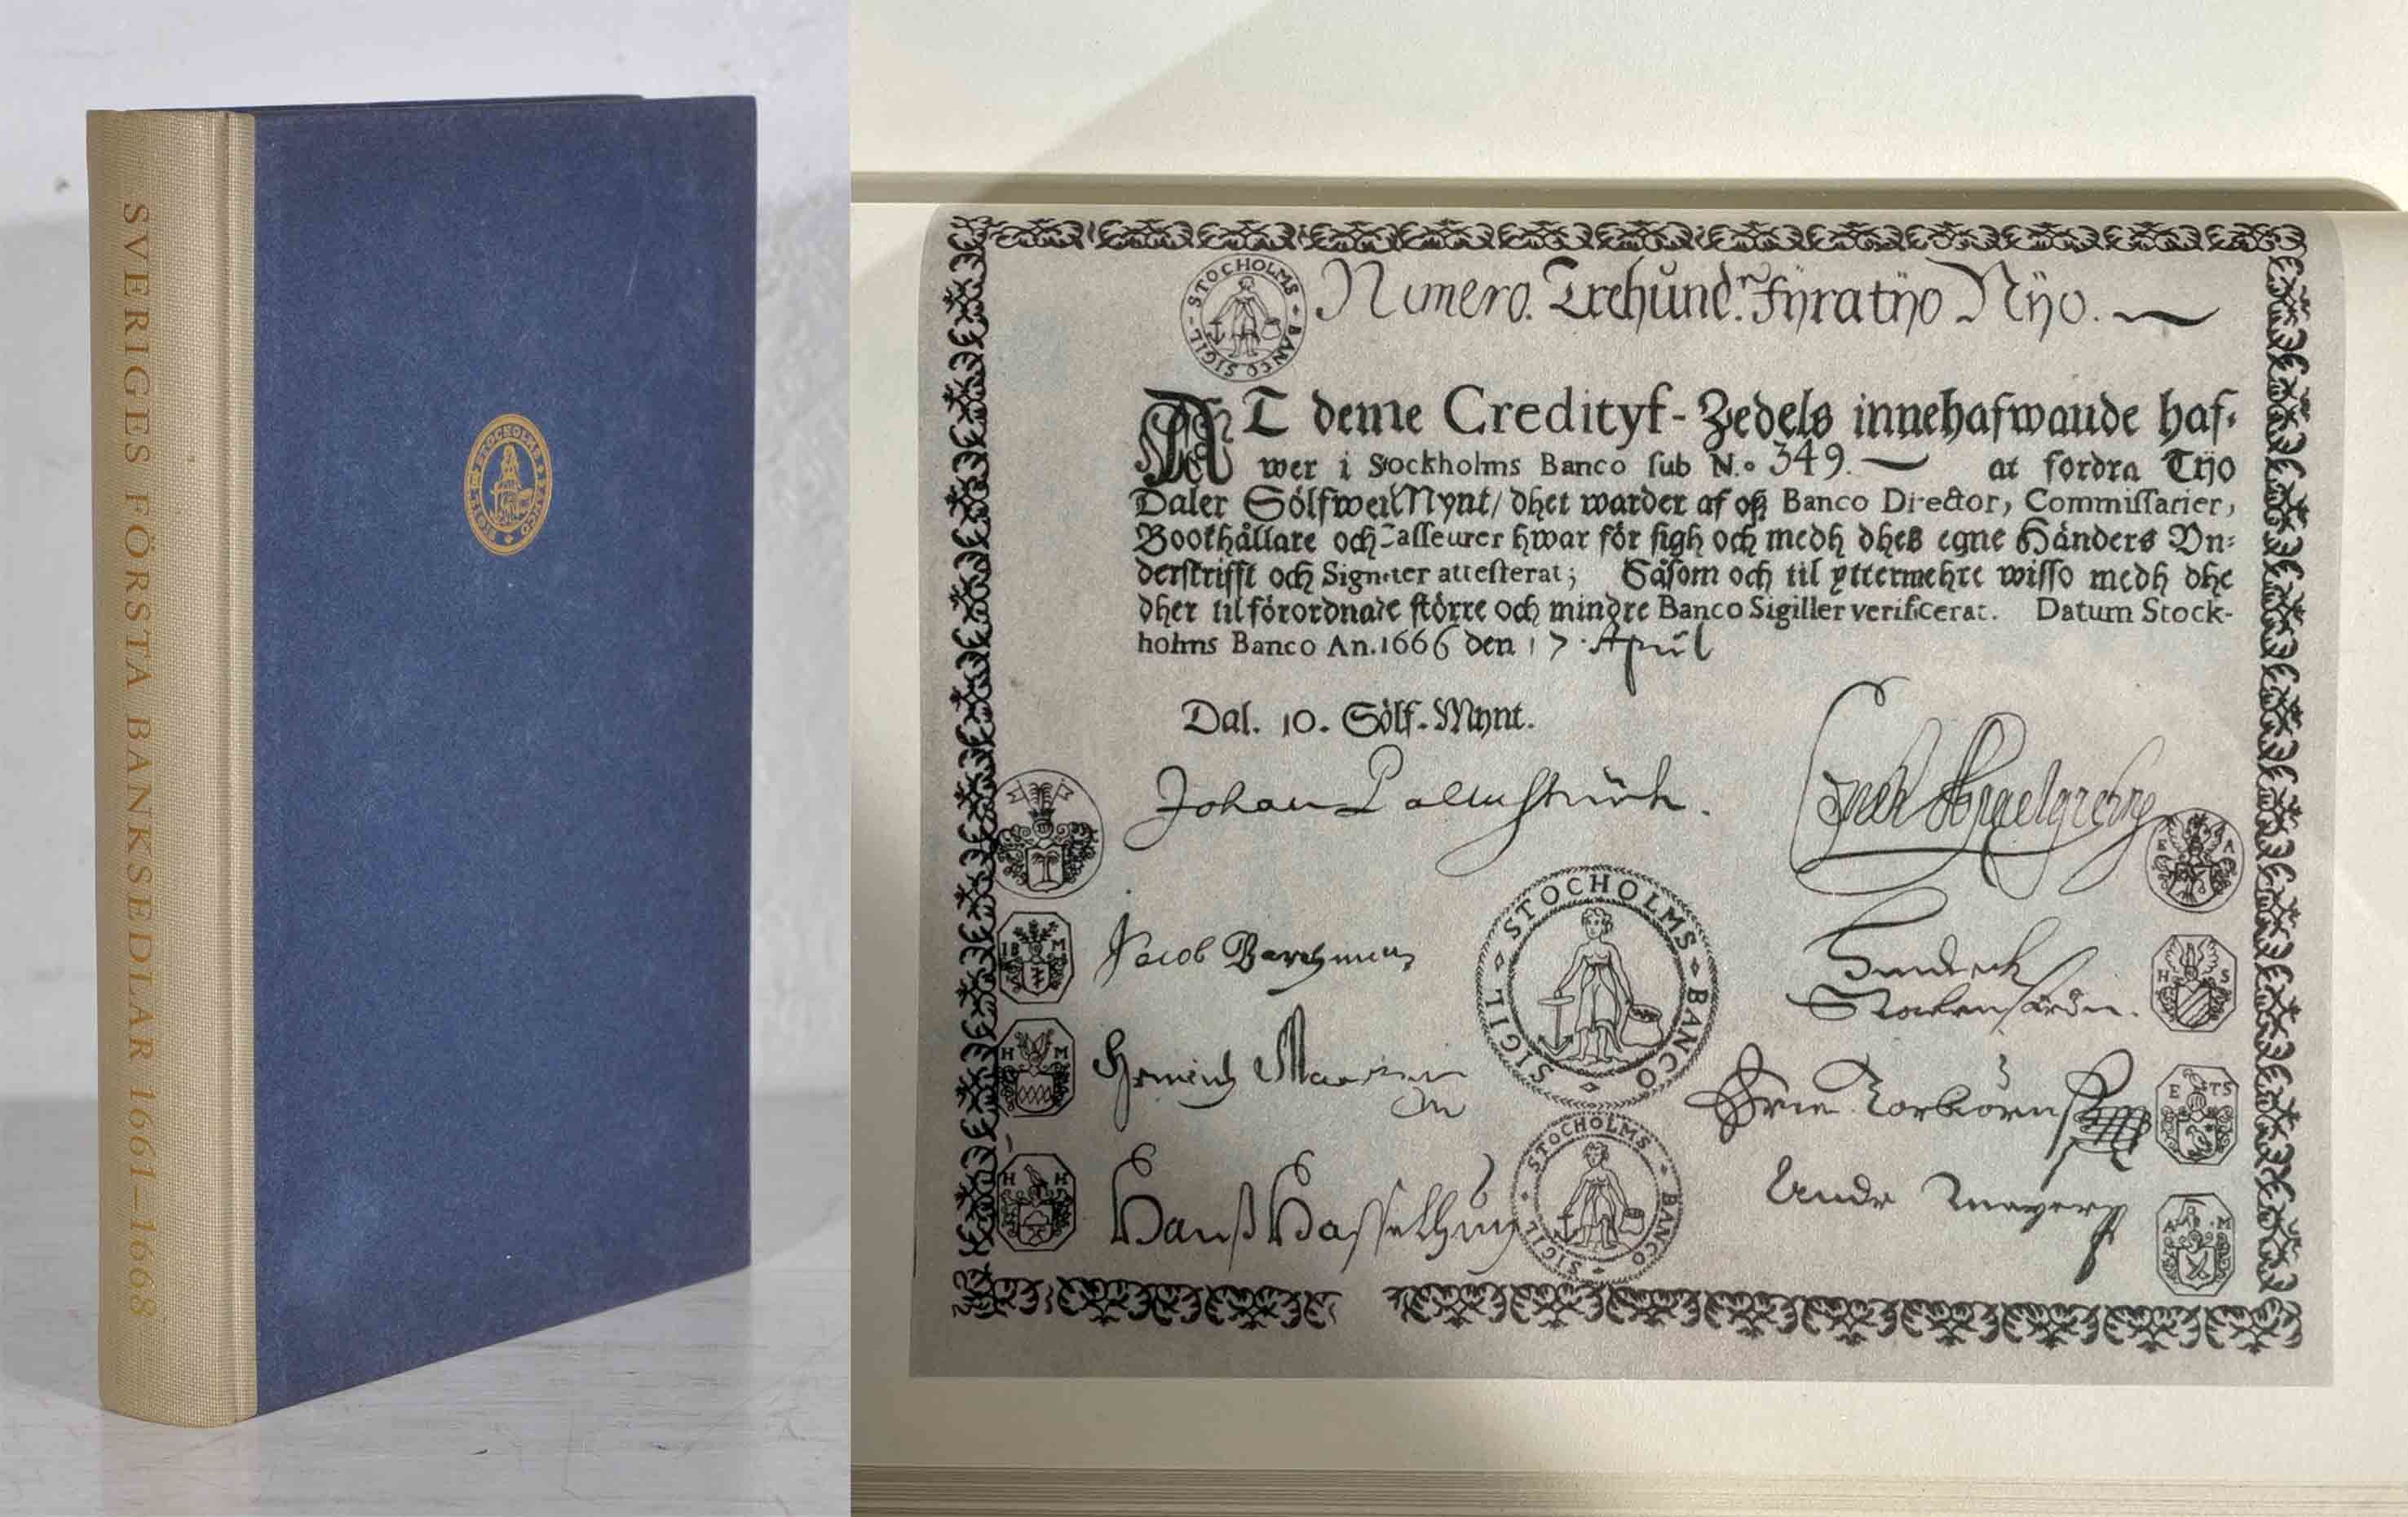 SVERIGES FÖRSTA BANKSEDLAR 1661–1668
STOCHOLMS BANCO SIGIL
STOCHOLMS BANCO SIGIL
Numero. Trehund. Fÿratÿo Nÿo.
AT denne Credityf-Zedels innehafwande haf-
wer i Stockholms Banco sub N.o 349. at fordra Tijo
Daler Sölfwer Mynt/ dhet warder af oß Banco Director, Commissarier,
Bookhållare och Casseurer hwar för sigh och medh dheß egne Händers Vn-
derskrifft och Signeter attesterat; Såsom och til yttermehre wisso medh dhe
dher til förordnate större och mindre Banco Sigiller verificerat. Datum Stock-
holms Banco An. 1666 den 17. April
Dal. 10. Sölf-Mynt.
Johan Palmstruch.
E A
Jacob Barchman
IB M
STOCHOLMS BANCO SIGIL
H S
H M
E TS
STOCHOLMS BANCO SIGIL
Hanß Hasselhun
H H
A M